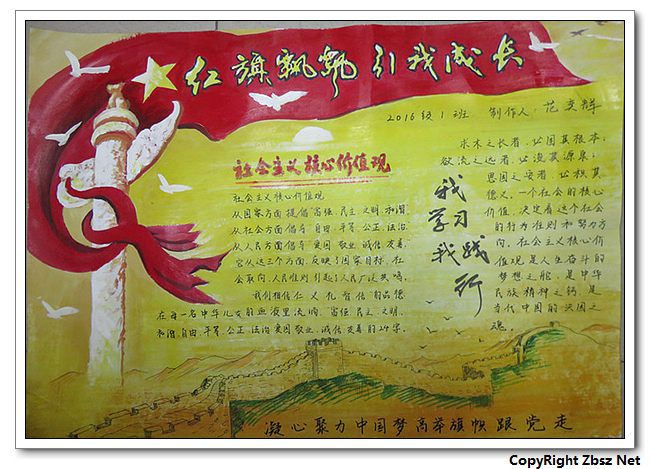 红旗飘飘 引我成长
2016级1班 制作人:范奕辉
社会主义核心价值观
社会主义核心价值观
从国家方面提倡富强、民主、文明、和谐,
从社会方面倡导自由、平等、公正、法治
从人民方面倡导爱国、敬业、诚信、友善,
它从这三个方面,反映了国家目标,社
会取向,人民准则引起了人民广泛共鸣。
我们相信仁义礼智信的品德
在每一名中华儿女的血液里流淌,富强、民主、文明、
和谐、自由、平等、公正、法治、爱国、敬业、诚信、友善的24字。
我学习
我践行
求木之长者,必固其根本;
欲流之远者,必浚其源泉;
思国之安者,必积其
德义。一个社会的核心
价值,决定着这个社会
的行为准则和努力方
向。社会主义核心价
值观是人生奋斗的
梦想之舵,是中华
民族精神之钙,是
当代中国的兴国之
魂。
凝心聚力中国梦 高举旗帜跟党走
CopyRight Zbsz Net